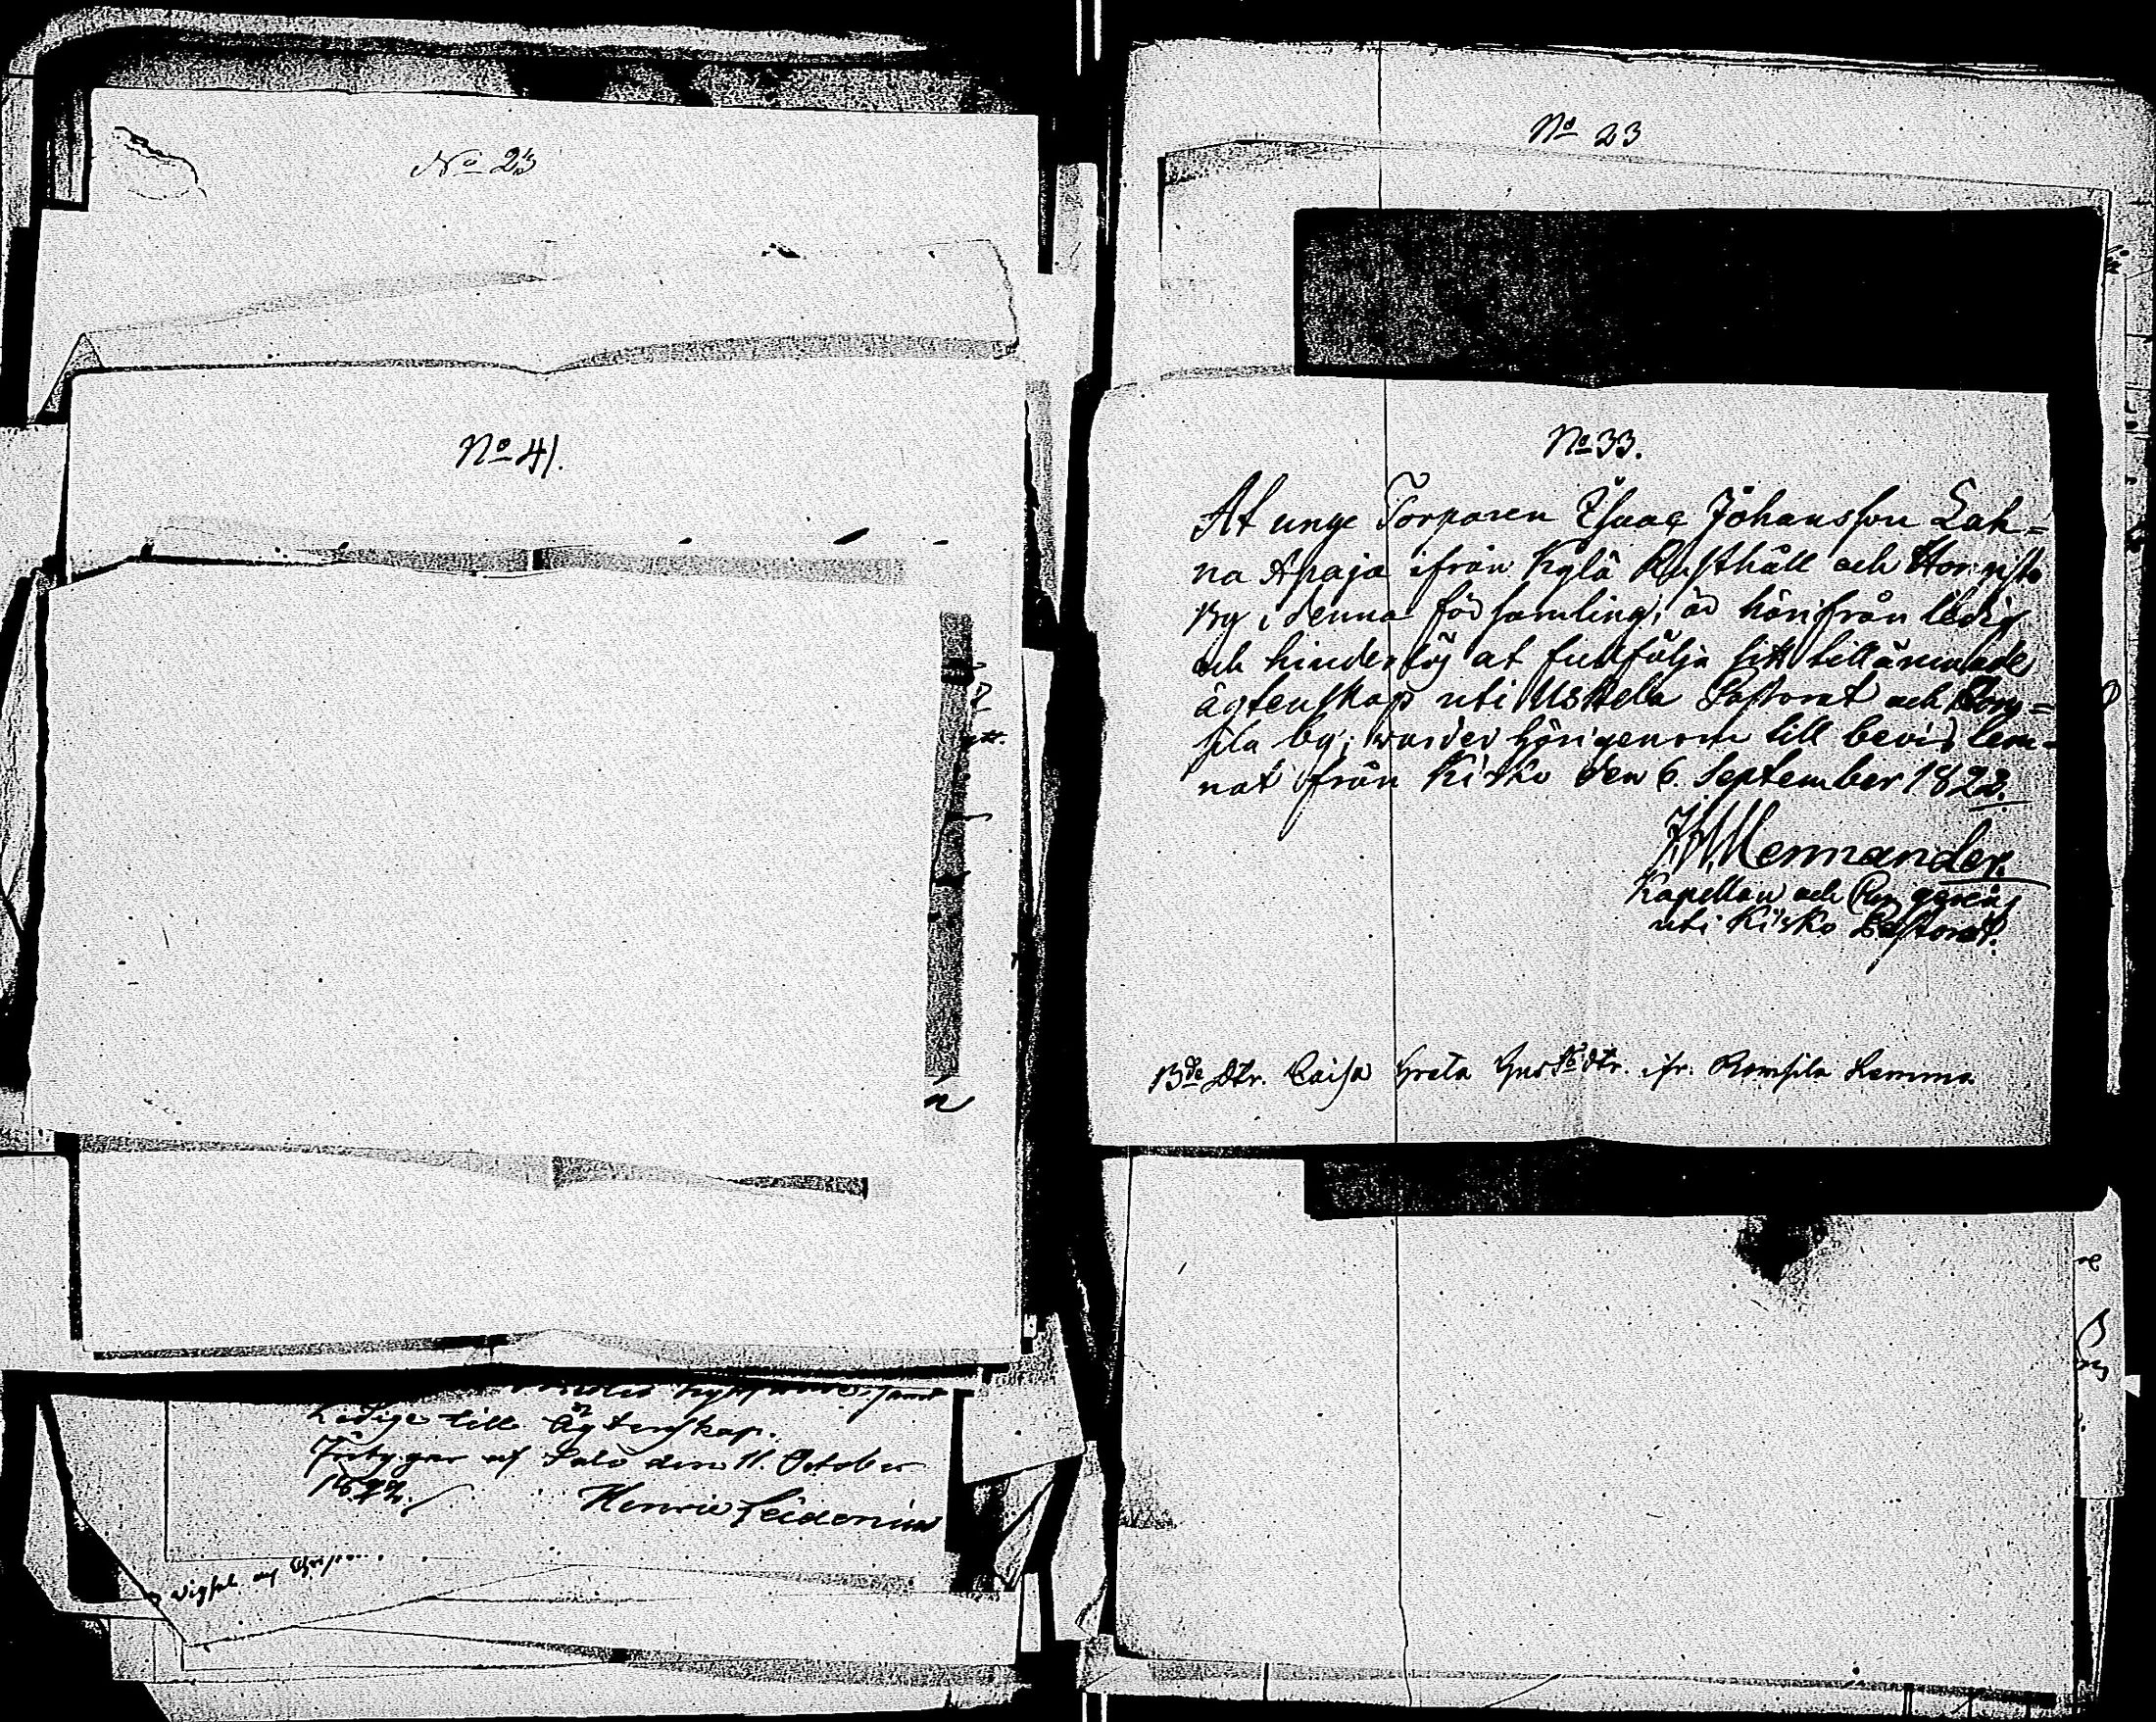 No 23
No 41.
Ledige till Ägtenskap.
af Salo den 11. October
1822.
Henric Leidenius
No 23
No 33.
At unge Torparen Isaac Johansson Lah=
na Apaja ifrån Kylä Rusthåll och
By i denna församling, är härifrån ledig
och hinderlös at fullfölja sitt tillämnade
ägtenskap uti Uskela Pastorat och Rom=
sila by; warder härigenom till bevis lem=
nat från Kisko den 6. September 1822.
Mennander.
Kapellan och
uti Kisko Pastorat.
Bde Dtr. Caisa Greta Gustdtr. ifr. Romsila